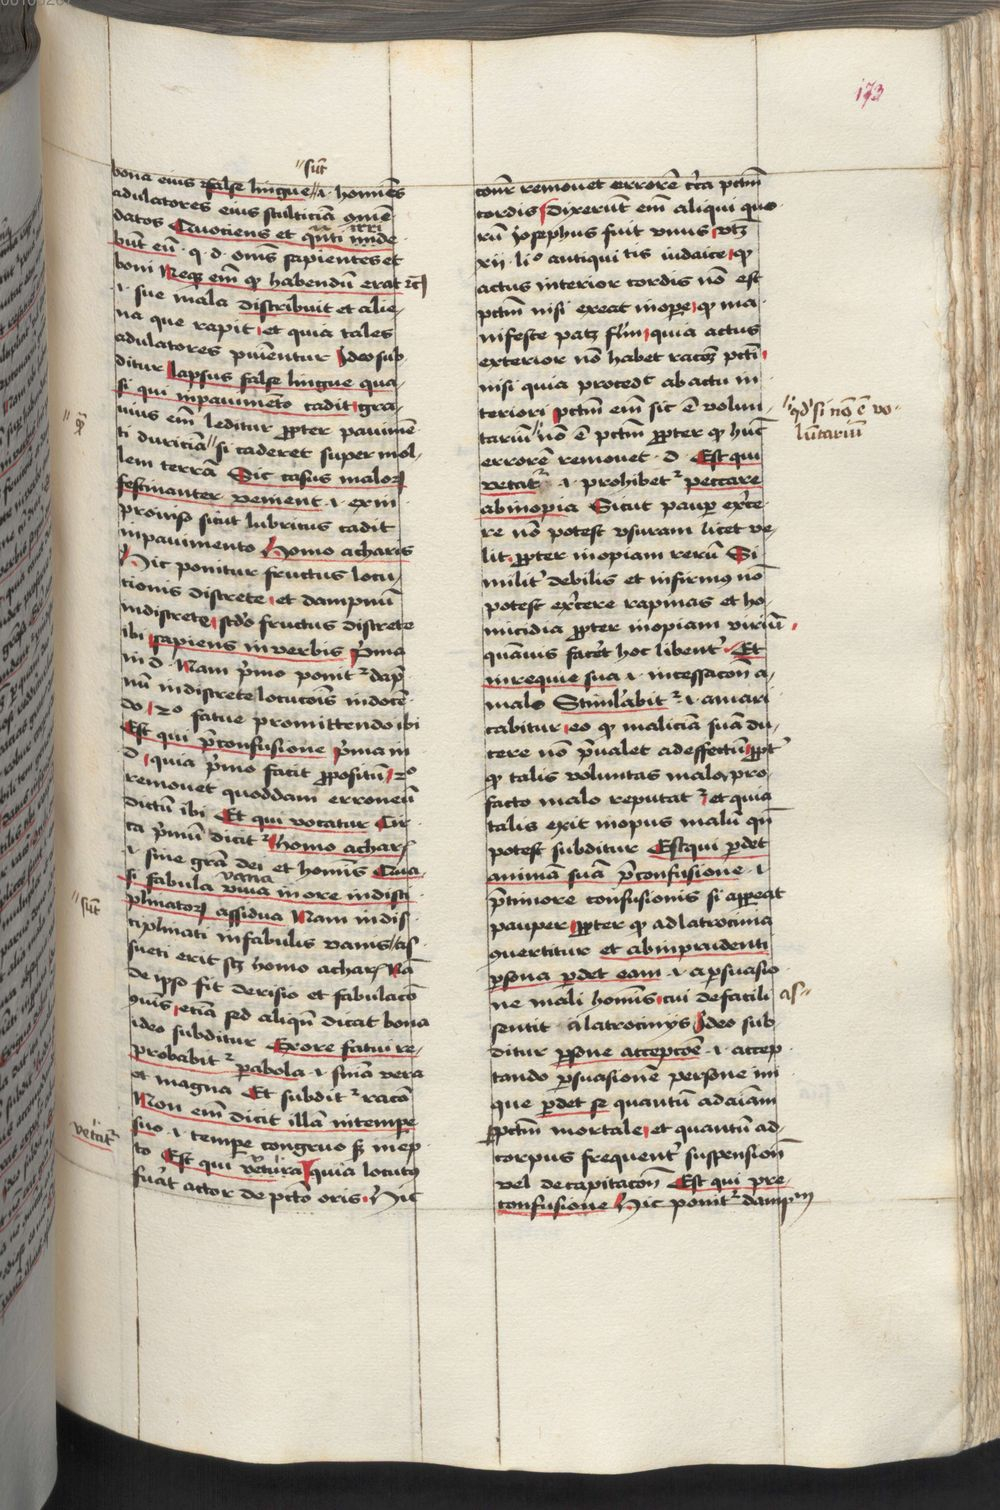 173
sūt
bona eius false lingue .i. homīes
adulatores eius stulticiā 
datos Quotiens et qūti irride
būt eū . q . d . om̄s sapientes et
boni Neq3 em̄ qͦ habendū erat
.i. sue mala distribuit et alie
na que rapit et quia tales
adulatores puīentur Ideo sub
ditur lapsus false lingue qua
si qui inpauimēto cadit gra
uius em̄ leditur ꝓpter pauimē
ti duriciā si caderet super mol
lem terrā Sic casus maloꝝ
festinanter venient .i. ex in
prouiso sicut lubricus cadit
inpauimento Homo acharis
Hic ponitur fructus locu
tionis discrete et dampnū
indiscrete scd̄o fructus discrete
ibi sapiens in verbis p̄ma
in d . Nam p̄mo ponit dap̄
nū indiscrete locucōis indocē
do 2o fatue promittendo ibi
Est qui p̄ confusione p̄ma in
d quia p̄mo facit ꝓpositū 2o
remouet quoddam erroneū
dictū ibi Et qui vocatur Cir
ca p̄mū dicit Homo achaꝝ
.i. sine grā dei et homīs Qua
vana
si fabula viua in ore indisci
plinatoꝝ assidua Nam indis
ciplinati in fabulis vanis as
sūt
sueti erit sꝫ homo achaꝝ Nā
de ipso fit derisio et fabulacō
ouīs etiā sed aliqn̄ dicat bona
ideo subditur Ex ore fatui re
probabit parabola .i. snīa vera
et magna Et subdit racō
Non em̄ dicit illā in tempe
suo .i. tempe congruo sꝫ inep
to Est qui vetatur quia locutꝰ
vetatr
fuat actor de pccto oris Hic
cor remouet errorē circa pctm̄
cordis Dixerūt em̄ aliqui quo
rū Josephus fuit vnus vtꝫ
xii . lio antiquitatis iudaice qͦ
actus interior cordis nō est
pctm̄ nisi exeat in opere qͦ ma
nifeste patꝫ fm̄ quia actus
exterior nō habet racōꝫ pcti
nisi quia procedt ab actu in
teriori pctm̄ em̄ sic ē volun
qd si nō ē vo
lūtariū
tariū nō ē pctm̄ ꝓpter qͦ hūc
errorē remouet . d . Est qui
vetatr .i. prohibetr peccare
ab inopia Sicut pauꝑ exc̄e
re nō potest vsuram licet ve
lit ꝓpter inopiam rerū Si
milit debilis et infirmꝰ nō
potest exc̄ere rapinas et ho
micidia ꝓpter inopiam viriū
quāuis facet hoc libent Et
in requie sua .i. in cessacōn a
malo Stimlabitr .i. amari
cabitur eo qͦ maliciam suā du
cere nō p̄ualet ad effectū ꝓpt
qͦ talis voluntas malo pro
facto malo reputatr et quia
talis exit in opus malū qn̄
potest subditur Est qui ꝑdet
animā suā p̄ confusione .i.
p̄ timore confusionis si appeat
pauper ꝓpter qͦ ad latrocinia
ꝯuertitur et ab imprudenti
ꝑsona ꝑdet eam .i. a ꝑsuasio
ne mali homīs cui de facili as
sentit a latrocinijs Ideo sub
ditur ꝑsone acceptōe .i. accep
tando ꝑsuasionē persone ini
que ꝑdet se quantū ad aiam
ꝑ pctm̄ mortale et quantū ad
corpus frequent suspensiōn
vel decapitacōn Est qui pre
confusione Hic ponitr dampm